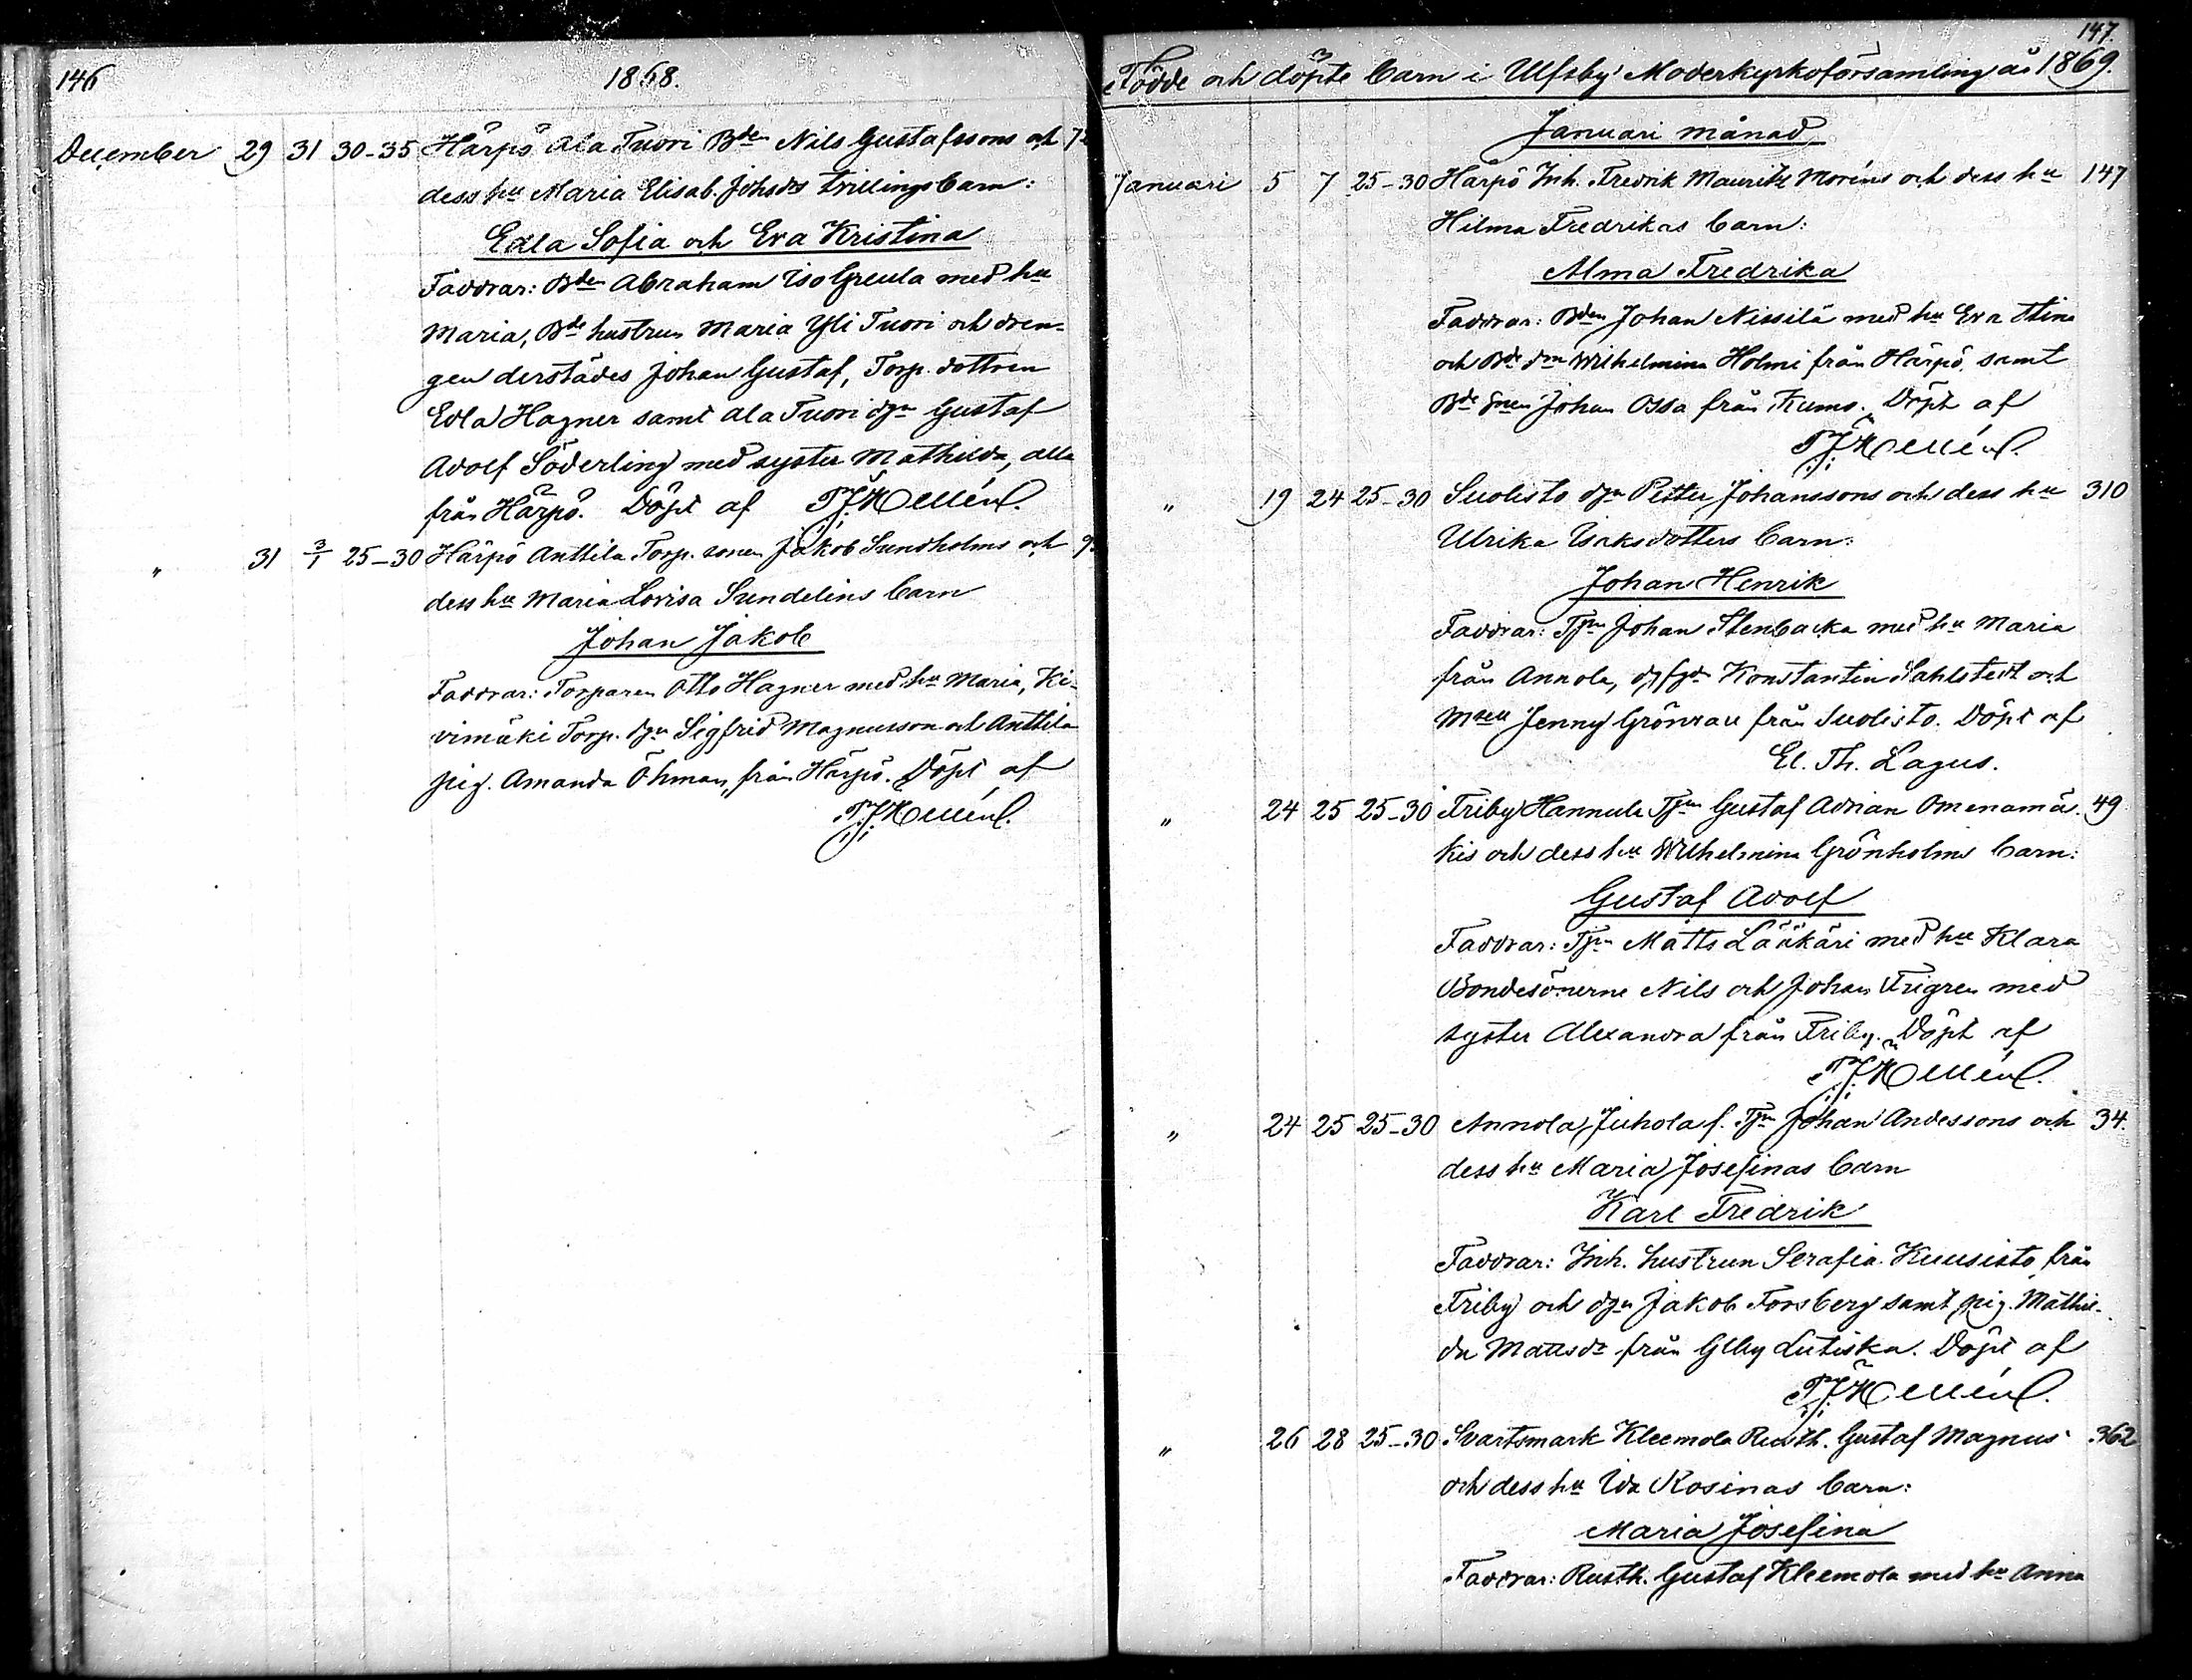 146
1868.
December 29 31 30-35 Härpö Ala Tuori Bden Nils Gustafssons och
dess hu Maria Elisab. Johsdrs tvillingsbarn:
Edla Sofia och Eva Kristina
Faddrar: Bden Abraham Iso Greula med hu
Maria, Bde hustrun Maria Yli Tuori och dren-
gen derstädes Johan Gustaf, Torp. dottren
Edla Hagner samt Ala Tuori dgn Gustaf
Adolf Söderling med syster Mathilda, alla
från Härpö. Döpt af
„ 31 3/1 25-30 Härpö Anttila Torp. sonen Jakob Sundholms och
dess hu Maria Lovisa Sundelins barn
Johan Jakob
Faddrar: Torparen Otto Hagner med hu Maria, Ki-
vimäki Torp. dgn Sigfrid Magnusson och Anttila
pig. Amanda Öhman, från Härpö. Döpt af
147.
Födde och döpte barn i Ulfsby Moderkyrkoförsamling år 1869.
Januari månad
Januari 5 7 25-30 Härpö Inh. Fredrik Mauritz Moréns och dess hu 147
Hilma Fredrikas barn:
Alma Fredrika
Faddrar: Bden Johan Nissilä med hu Eva Stina
och Bde drn Wilhelmina Holmi från Härpö, samt
Bde Johan Ossa från Kumo. Döpt af
„ 19 24 25-30 Suolisto dgn Petter Johanssons och dess hu 310
Ulrika Isaksdotters barn:
Johan Henrik
Faddrar: Tjn Johan Stenbacka med hu Maria
från Annola, Konstantin Sahlstedt och
Jenny Grönvall från Suolisto. Döpt af
El. Th. Lagus.
„ 24 25 25-30 Friby Hannula Tjn Gustaf Adrian Omenamä- 49
kis och dess hu Wilhelmina Grönholms barn:
Gustaf Adolf
Faddrar: Tjn Matts Lääkäri med hu Klara
Bondesönerne Nils och Johan Frigren med
syster Alexandra från Friby. Döpt af
„ 24 25 25-30 Annola, Juhola f. Tjn Johan Anderssons och 34.
dess hu Maria Josefinas barn
Karl Fredrik
Faddrar: Inh. hustrun Serafia Kuusisto från
Friby och dgn Jakob Forsberg samt pig. Mathil-
da Mattsdr från Glby Lutiska. Döpt af
„ 26 28 25-30 Svartsmark Kleemola Rusth. Gustaf Magnus 362
och dess hu Ida Rosinas barn:
Maria Josefina
Faddrar: Rusth. Gustaf Kleemola med hu Anna